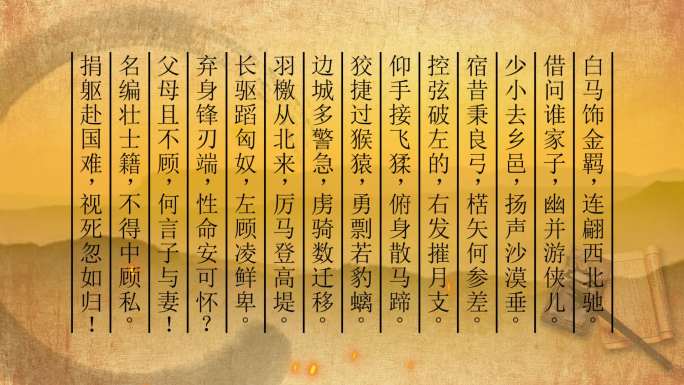 白马饰金羁，连翩西北驰。
借问谁家子，幽并游侠儿。
少小去乡邑，扬声沙漠垂。
宿昔秉良弓，楛矢何参差。
控弦破左的，右发摧月支。
仰手接飞猱，俯身散马蹄。
狡捷过猴猿，勇剽若豹螭。
边城多警急，虏骑数迁移。
羽檄从北来，厉马登高堤。
长驱蹈匈奴，左顾凌鲜卑。
弃身锋刃端，性命安可怀？
父母且不顾，何言子与妻！
名编壮士籍，不得中顾私。
捐躯赴国难，视死忽如归！